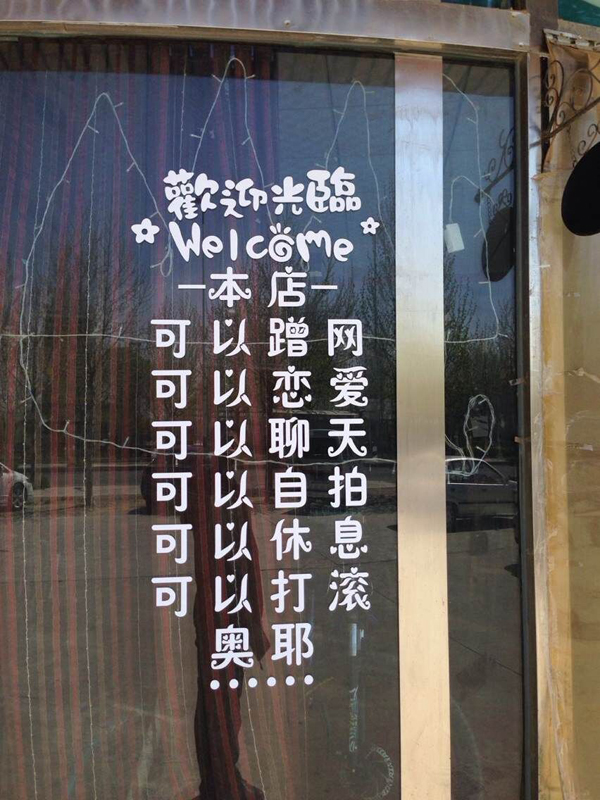 歡迎光臨
Welcome
—本店—
可以蹭网
可以恋爱
可以聊天
可以自拍
可以休息
可以打滚
奥耶
••••••